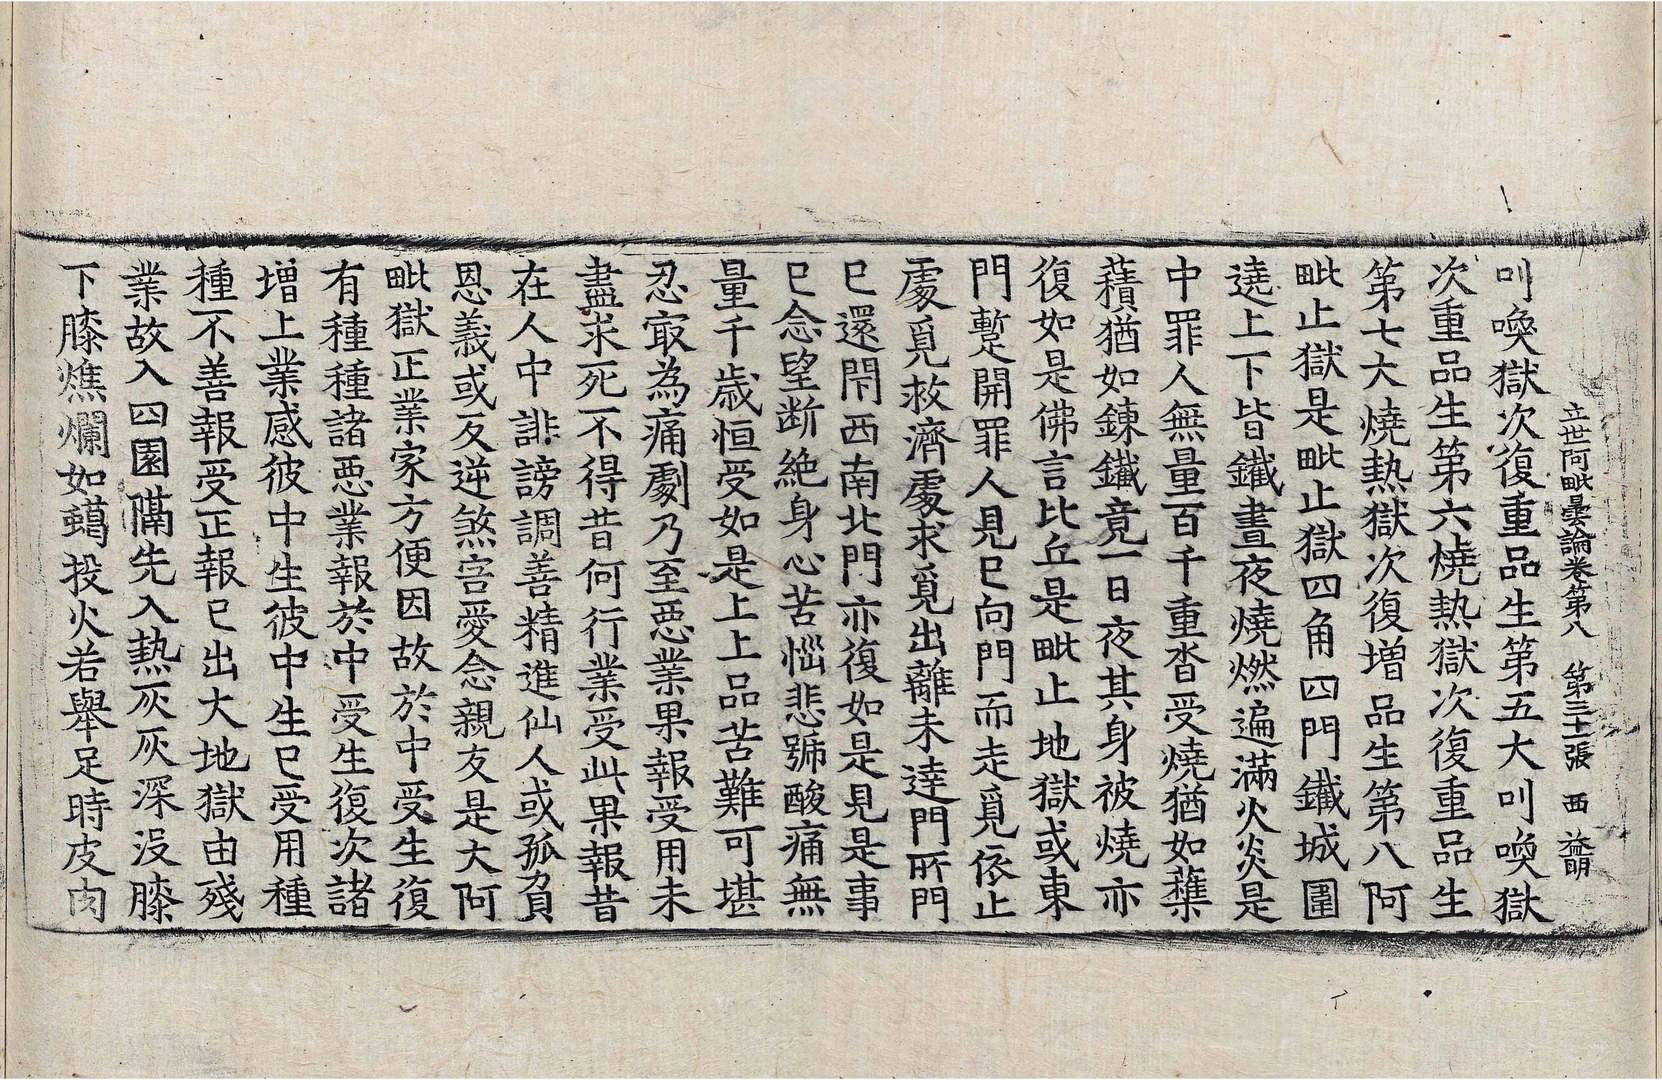 立世阿毗曇論卷第八 第三十一張 西 益明
叫喚獄次復重品生第五大叫喚獄
次重品生第六燒熱獄次復重品生
第七大燒熱獄次復增品生第八阿
毗止獄是毗止獄四角四門鐵城圍
遶上下皆鐵晝夜燒燃遍滿火炎是
中罪人無量百千重沓受燒猶如藂
䕽猶如鍊鐵竟一日夜其身被燒亦
復如是佛言比丘是毗止地獄或東
門蹔開罪人見已向門而走覓依止
處覓救濟處求覓出離未達門所門
已還閇西南北門亦復如是見是事
已念望断絶身心苦惱悲號酸痛無
量千歲恒受如是上上品苦難可堪
忍㝡為痛劇乃至惡業果報受用未
盡求死不得昔何行業受此果報昔
在人中誹謗調善精進仙人或孤負
恩義或反逆煞害愛念親友是大阿
毗獄正業家方便因故於中受生復
有種種諸惡業報於中受生復次諸
增上業感彼中生彼中生已受用種
種不善報受正報已出大地獄由殘
業故入四園隔先入熱灰灰深沒膝
下膝燋爛如蠟投火若舉足時皮肉